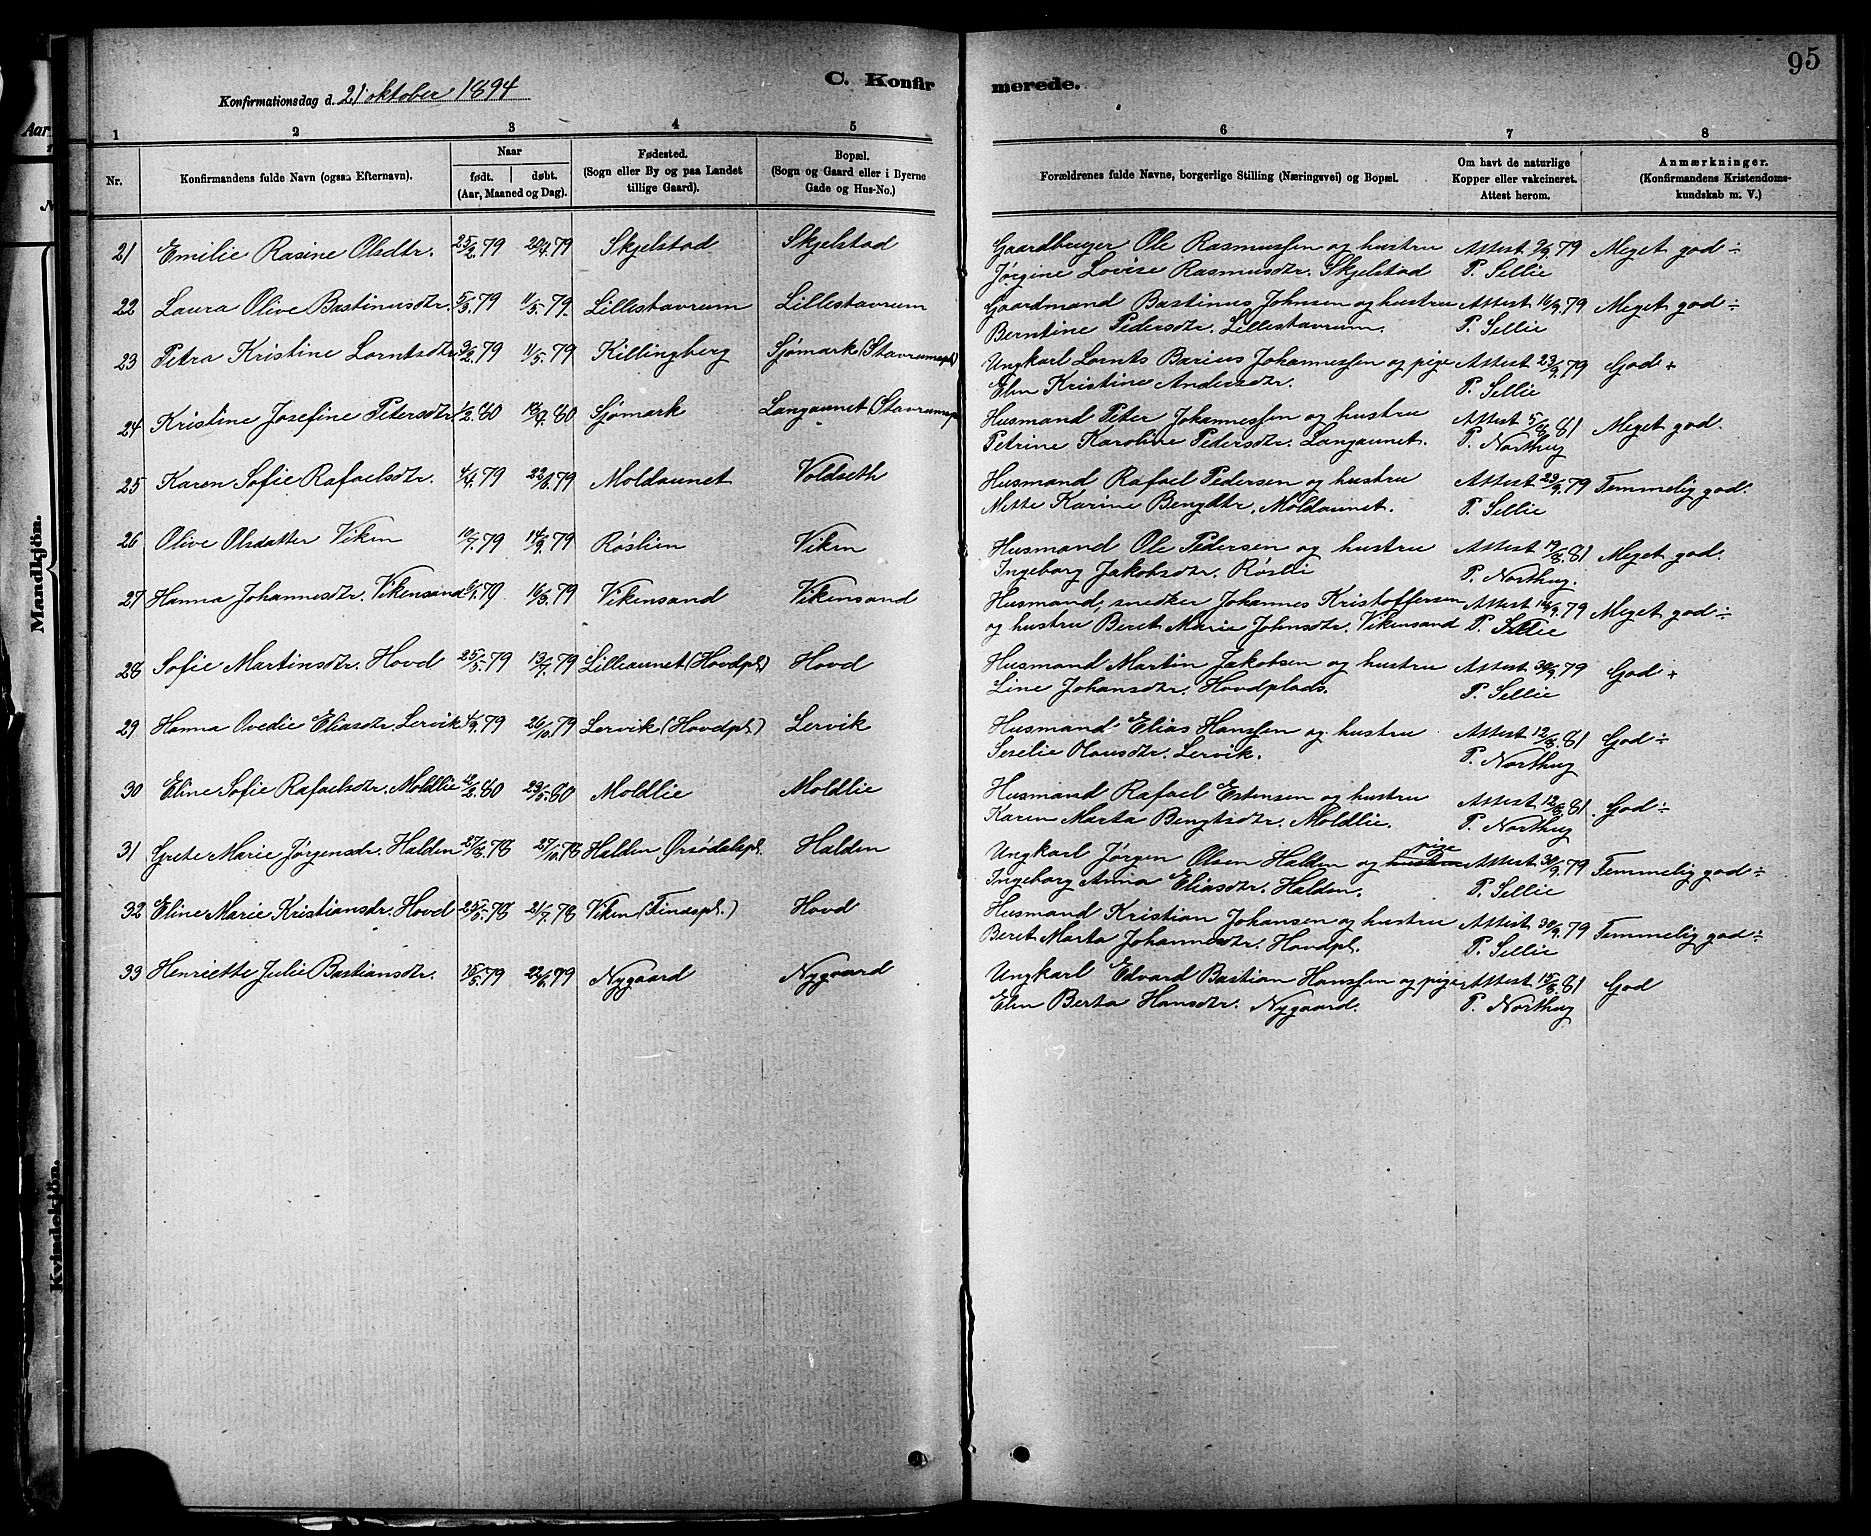 95
C. Konfir merede.
Konfirmationsdag d. 21 oktober 1894
1 2 3 4 5 6 7 8
Nr.
Konfirmandens fulde Navn (ogsaa Efternavn).
Naar
født. døbt.
(Aar, Maaned og Dag).
Fødested.
(Sogn eller By og paa Landet
tillige Gaard).
Bopæl.
(Sogn og Gaard eller i Byerne
Gade og Hus-No.)
Forældrenes fulde Navne, borgerlige Stilling (Næringsvei) og Bopæl.
Om havt de naturlige
Kopper eller vakcineret.
Attest herom.
Anmærkninger.
(Konfirmandens Kristendoms-
kundskab m. V.)
21 Emilie Rasine Olsdtr. 25/2.79 20/4.79 Skjelstad Skjelstad Gaardbruger Ole Rasmussen og hustru Attest 2/9.79 Meget god ÷
Jørgine Lovise Rasmusdtr. Skjelstad P. Sellie
22 Laura Olive Bastinusdtr. 5/3.79 11/5.79. Lillestavrum Lillestavrum Gaardmand Bastinus Johnsen og hustru Attest 16/9.79 Meget god ÷
Berntine Pedersdtr. Lillestavrum. P. Sellie
23 Petra Kristine Lorntsdtr. 3/2.79 11/5.79 Killingberg Sjømark (Stavrumspl) Ungkarl Lornts Barius Johannessen og pige Attest 23/9.79 God +
Elen Kristine Andersdtr. P. Sellie
24 Kristine Josefine Petersdtr. 1/2.80 Sjømark Langaunet (Stavrumspl Husmand Peter Johannessen og hustru Attest 5/8.81 Meget god.
Petrine Karoline Pedersdtr. Langaunet. P. Northug
25 Karen Sofie Rafaelsdtr. 4/4.79 22/6.79 Moldaunet Voldseth Husmand Rafael Pedersen og hustru Attest 23/9.79 Temmelig god.
Mette Karine Bengtdtr. Moldaunet. P. Sellie
26 Olive Olsdatter Viken 10/7.79 14/9.79 Røsliem Viken Husmand Ole Pedersen og hustru Attest 19/8.81 Meget god.
Ingeborg Jakobsdtr. Røsli P. Northug.
27 Hanna Johannesdtr. Vikensand 16/3.79 Vikensand Vikensand Husmand, snedker Johannes Kristoffersen Attest 16/9.79 Meget god ÷
og hustru Beret Marie Johnsdtr. Vikensand P. Sellie
28 Sofie Martinsdtr. Hovd 25/5.79 13/7.79 Lilleaunet (Hovdpl) Hovd Husmand Martin Jakobsen og hustru Attest 30/9.79 God +
Line Johansdtr. Hovdplads. P. Sellie
29 Hanna Ovedie Eliasdtr. Lervik 1/9.79 26/10.79 Lervik (Hovdpl.) Lervik Husmand Elias Hanssen og hustru Attest 12/8.81 God ÷
Serelie Olausdtr. Lervik. P. Northug
30 Eline Sofie Rafaelsdtr. Moldlie 12/2.80 23/5.80 Moldlie Moldlie Husmand Rafael Estensen og hustru Attest 12/8.81 God ÷
Karen Marta Bengtsdtr. Moldlie. P. Northug
31 Grete Marie Jørgensdr. Halden 27/8.78 27/10.78 Halden Ørsødalspl. Halden Ungkarl Jørgen Olsen Halden og hustru pige Attest 30/9.79 Temmelig god ÷
Ingeborg Anna Eliasdtr. Halden. P. Sellie
32 Eline Marie Kristiansdr. Hovd 25/5.78 21/7.78 Viken (Findspl.) Hovd Husmand Kristian Johansen og hustru Attest 30/9.79 Temmelig god ÷
Beret Marta Johannesdtr. Hovdpl. P. Sellie
33 Henriette Julie Bastiansdtr. 15/5.79 22/6.79 Nygaard Nygaard Ungkarl Edvard Bastian Hanssen og pige Attest 15/8.81 God
Elen Berta Hansdtr. Nygaard. P. Northug
Aar.
Mandkjön.
Kvindekjön.